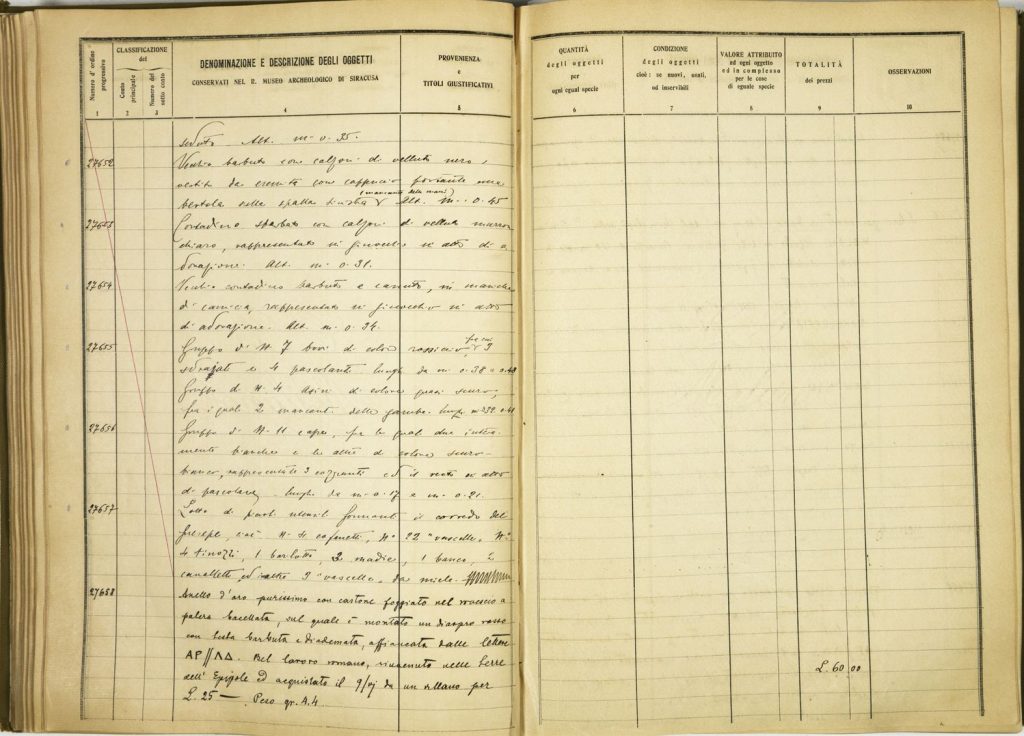 Numero d'ordine progressivo
CLASSIFICAZIONE del
Conto principale
Numero del sotto conto
DENOMINAZIONE E DESCRIZIONE DEGLI OGGETTI
CONSERVATI NEL R. MUSEO ARCHEOLOGICO DI SIRACUSA
PROVENIENZA
e
TITOLI GIUSTIFICATIVI
QUANTITÀ
degli oggetti
per
ogni egual specie
CONDIZIONE
degli oggetti
cioè: se nuovi, usati,
od inservibili
VALORE ATTRIBUITO
ad ogni oggetto
ed in complesso
per le cose
di eguale specie
TOTALITÀ
dei prezzi
OSSERVAZIONI
1 2 3 4 5 6 7 8 9 10
seduto Alt. m. 0.35.
27652 Vecchio barbuto con calzoni di velluto nero,
vestito da eremita con cappuccio portante una
(mancante delle mani)
bertola sulla spalla sinistra Alt. m. 0.45
27653 Contadino sbarbato con calzoni di velluto marron
chiaro, rappresentato in ginocchio in atto di a
dorazione. Alt. m. 0.31.
27654 Vecchio contadino barbuto e canuto, in maniche
di camicia, rappresentato in ginocchio in atto
di adorazione. Alt. m. 0.34.
27655 Gruppo di N. 7 buoi di colore rossiccio, 3
sdrajati e 4 pascolanti lunghi da m. 0.38 a 0.48
Gruppo di N. 4 asini di colore quasi scuro,
fra i quali 2 mancanti delle gambe.
27656 Gruppo di N. 11 capre, fra le quali due intera-
mente bianche e le altre di colore scuro-
bianco, rappresentate 3 cozzanti ed il resto in atto
di pascolare, lunghe da m. 0.17 a m. 0.21.
27657 Lotto di piccoli utensili formanti il corredo del
presepe, cioè N. 4 cofanetti, N° 22 "vascelle", N.
4 tinozzi, 1 barlotto, 2 madie, 1 banco, 2
cavalletti ed altre 3 "vascelle" da miele.
27658 Anello d'oro purissimo con castone foggiato nel rovescio a
patera baccellata, sul quale è montato un diaspro rosso
con testa barbuta e diademata, affiancata dalle lettere
ΑΡ // ΛΔ. Bel lavoro romano, rinvenuto nelle terre
dell' Epipole ed acquistato il 9/vj da un villano per
L. 25 — Peso gr. 4.4
L. 60.00